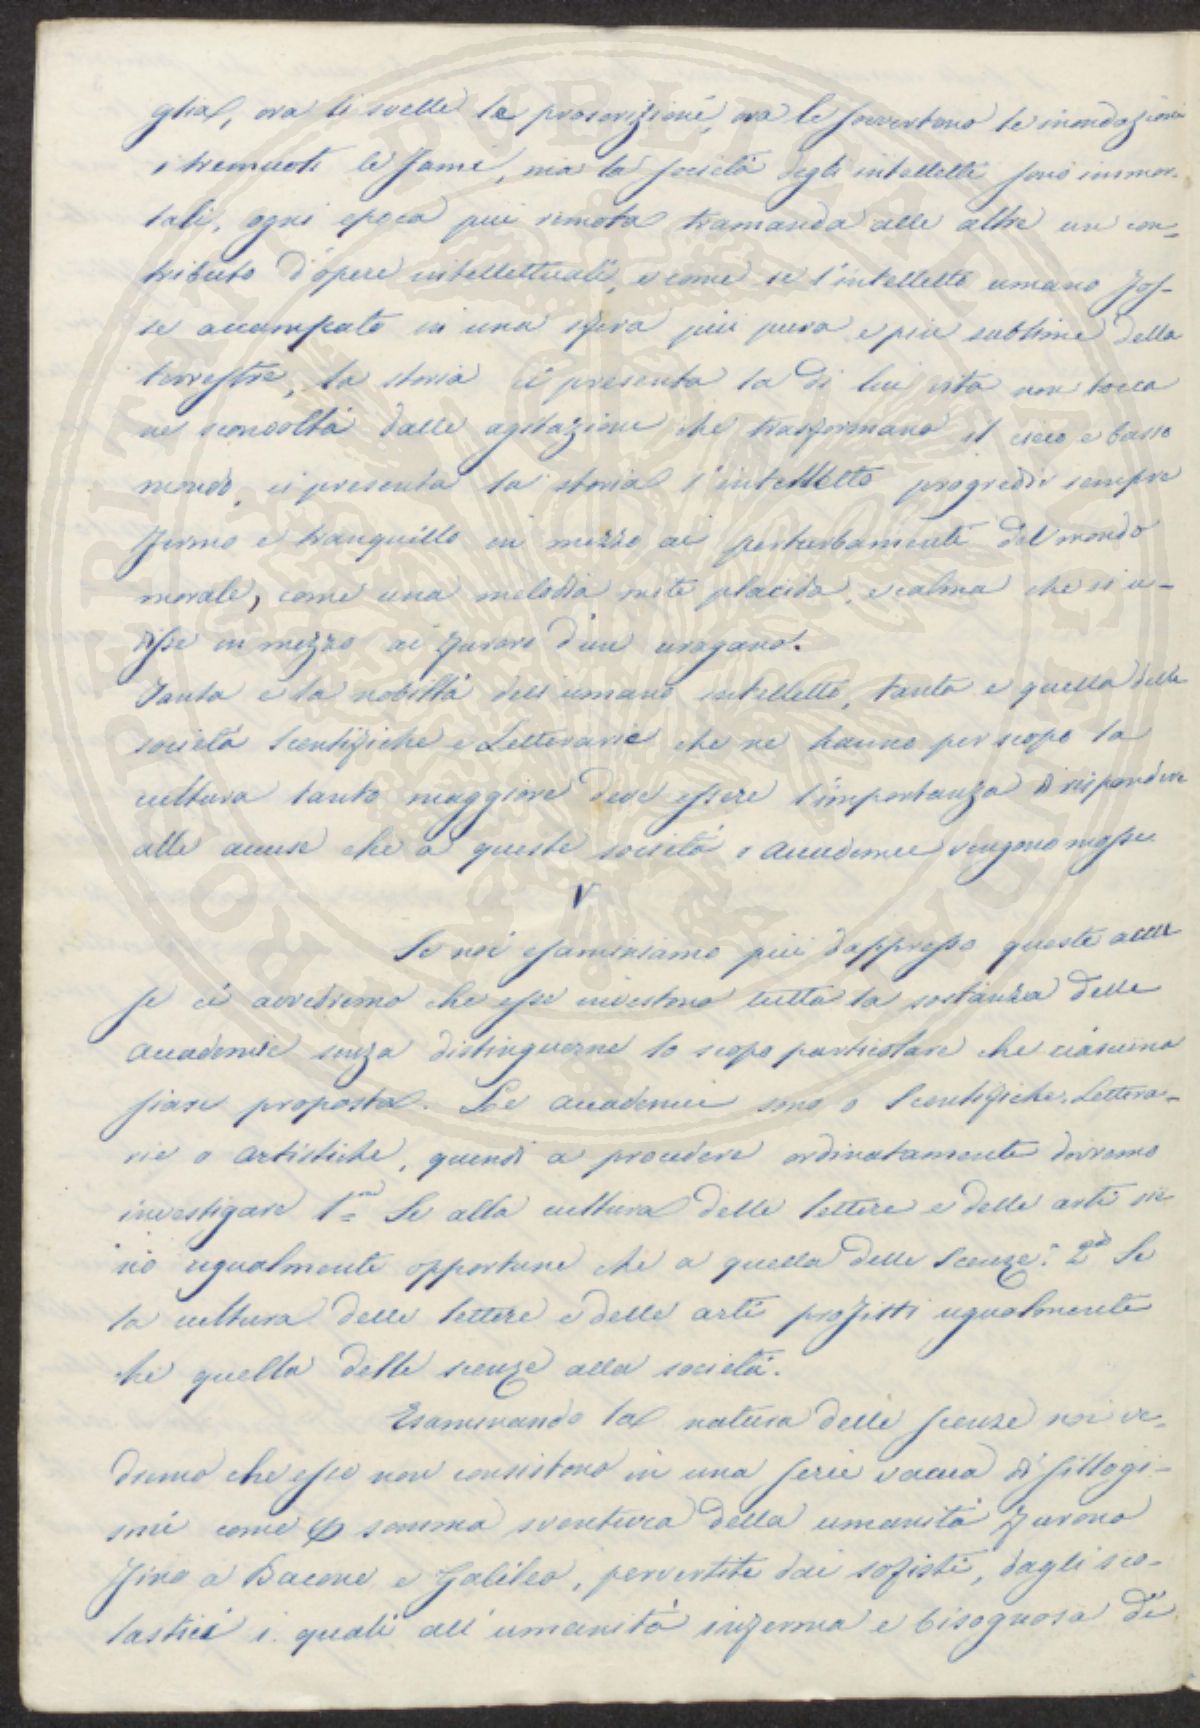 glia, ora li svelle la proscrizione, ora le sovvertono le inondazioni
i tremuoti le fami, ma la società degli intelletti sono immor-
tali, ogni epoca più remota tramanda alle altre un con-
tributo d'opere intellettuali, e come se l'intelletto umano fos-
se accampato in una sfera più pura e più sublime della
terrestre, la storia ci presenta la di lui vita non tocca
nè sconvolta dalle agitazioni che trasformano il cieco e basso
mondo, ci presenta la storia l'intelletto progredir sempre
fermo e tranquillo in mezzo ai perturbamenti del mondo
morale, come una melodia mite placida, e calma che si u-
disse in mezzo ai furori d'un uragano.
Tanta è la nobiltà dell'umano intelletto, tanta è quella delle
società Scentifiche e Letterarie che ne hanno per scopo la
cultura tanto maggiore deve essere l'importanza di rispondere
alle accuse che a queste società o accademie vengono mosse.
V
Se noi esaminiamo più dappresso queste accu
se ci avvedremo che esse investono tutta la sostanza delle
accademie senza distinguerne lo scopo particolare che ciascuna
siasi proposta. Le accademie sono o Scentifiche, Lettera-
rie o artistiche, quindi a procedere ordinatamente dovremo
investigare 1.mo Se alla cultura delle lettere e delle arti sie
no ugualmente opportune che a quella delle Scenze: 2.do Se
la cultura delle lettere e delle arti profitti ugualmente
che quella delle scenze alla società.
Esaminando la natura delle scenze noi ve-
diamo che esse non consistono in una serie vacua di sillogi-
smi come a somma sventura della umanità furono
fino a Bacone e Galileo, pervertite dai sofisti, dagli sco-
lastici i quali all'umanità inferma e bisognosa di
PROPERITATE PVBLICAE